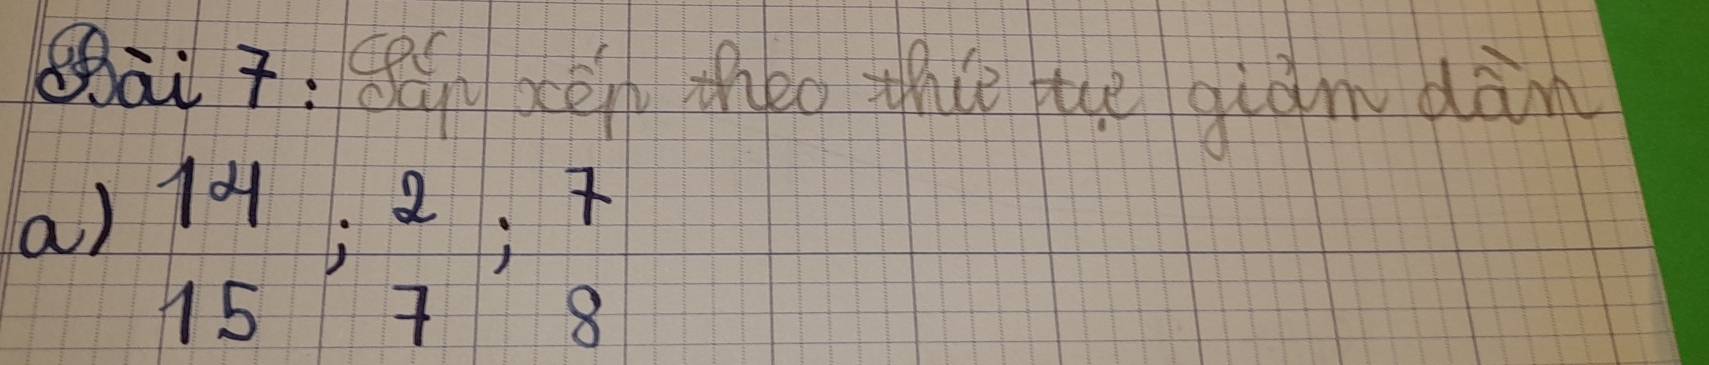 Bài 7: Sắp xếp theo thứ tự giảm dần
a) 14/15 ; 2/7 ; 7/8